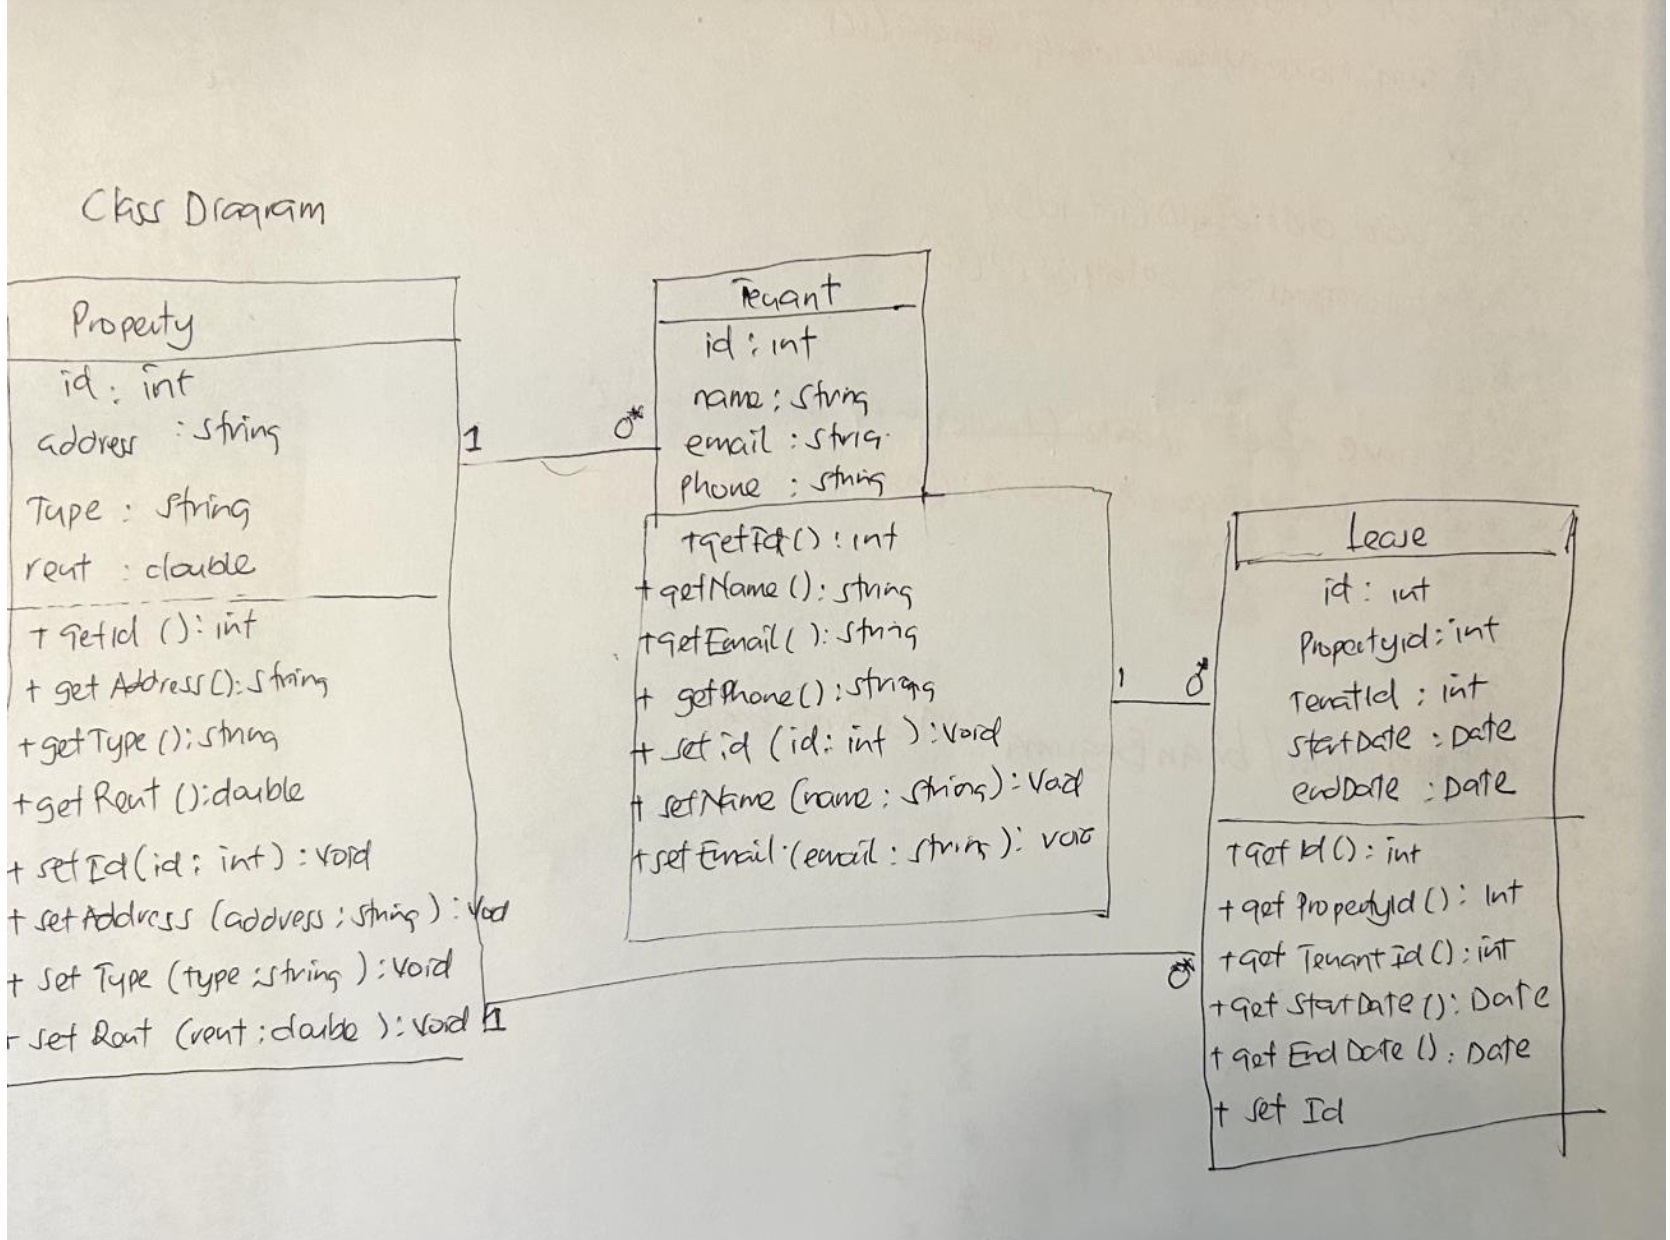 Class Diagram
Property
id : int
address : string
Type : string
rent : double
+ getId () : int
+ get Address() : string
+ getType () : string
+ get Rent () : double
+ setId (id : int) : void
+ setAddress (address : string) : void
+ set Type (type : string) : void
+ set Rent (rent : double ) : void
1
0*
1
Tenant
id : int
name : string
email : strig.
phone : string
+getId() : int
+ getName () : string
+getEmail( ) : string
+ getPhone() : string
+ set id (id : int ) : void
+ setName (name : string) : void
+setEmail (email : string) : void
1
0*
0*
Lease
id : int
PropertyId : int
TenatId : int
startDate : Date
endDate : Date
+get Id() : int
+get PropertyId () : Int
+get TenantId () : int
+get StartDate () : Date
+ get EndDate () : Date
+ set Id